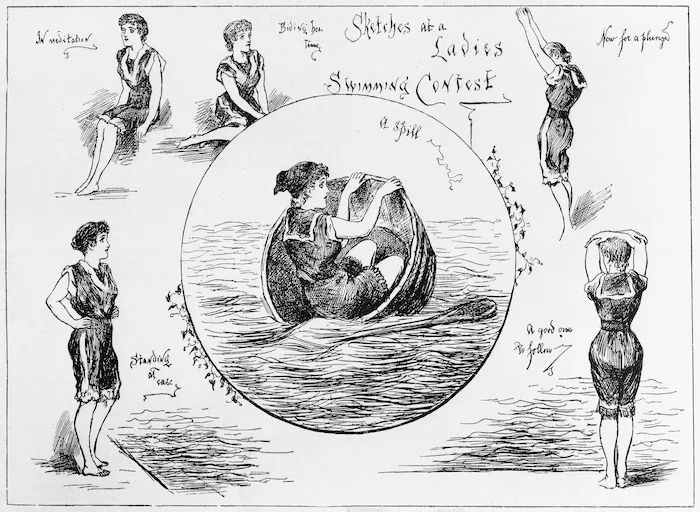 In meditation
Biding her
time
Sketches at a
Ladies
Swimming Contest
Now for a plunge
A spill
Standing
at
ease
A good one
to follow